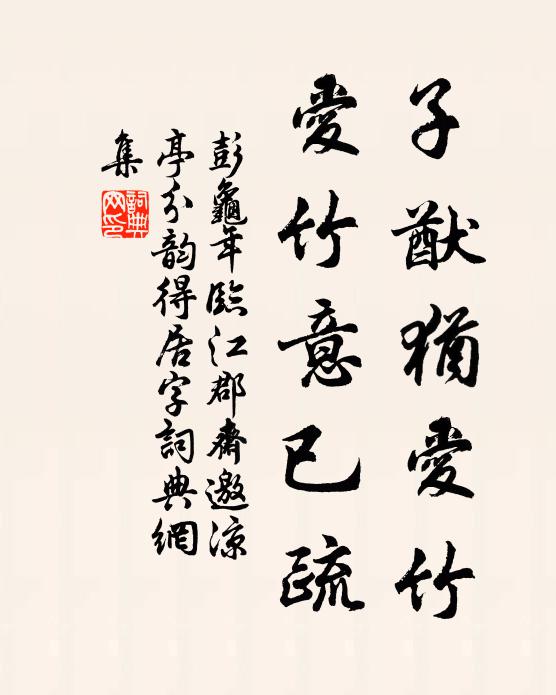 子猷猶愛竹
愛竹意已疏
彭龜年臨江郡齋邀涼
亭分韵得居字詞典網
集
詞典网印